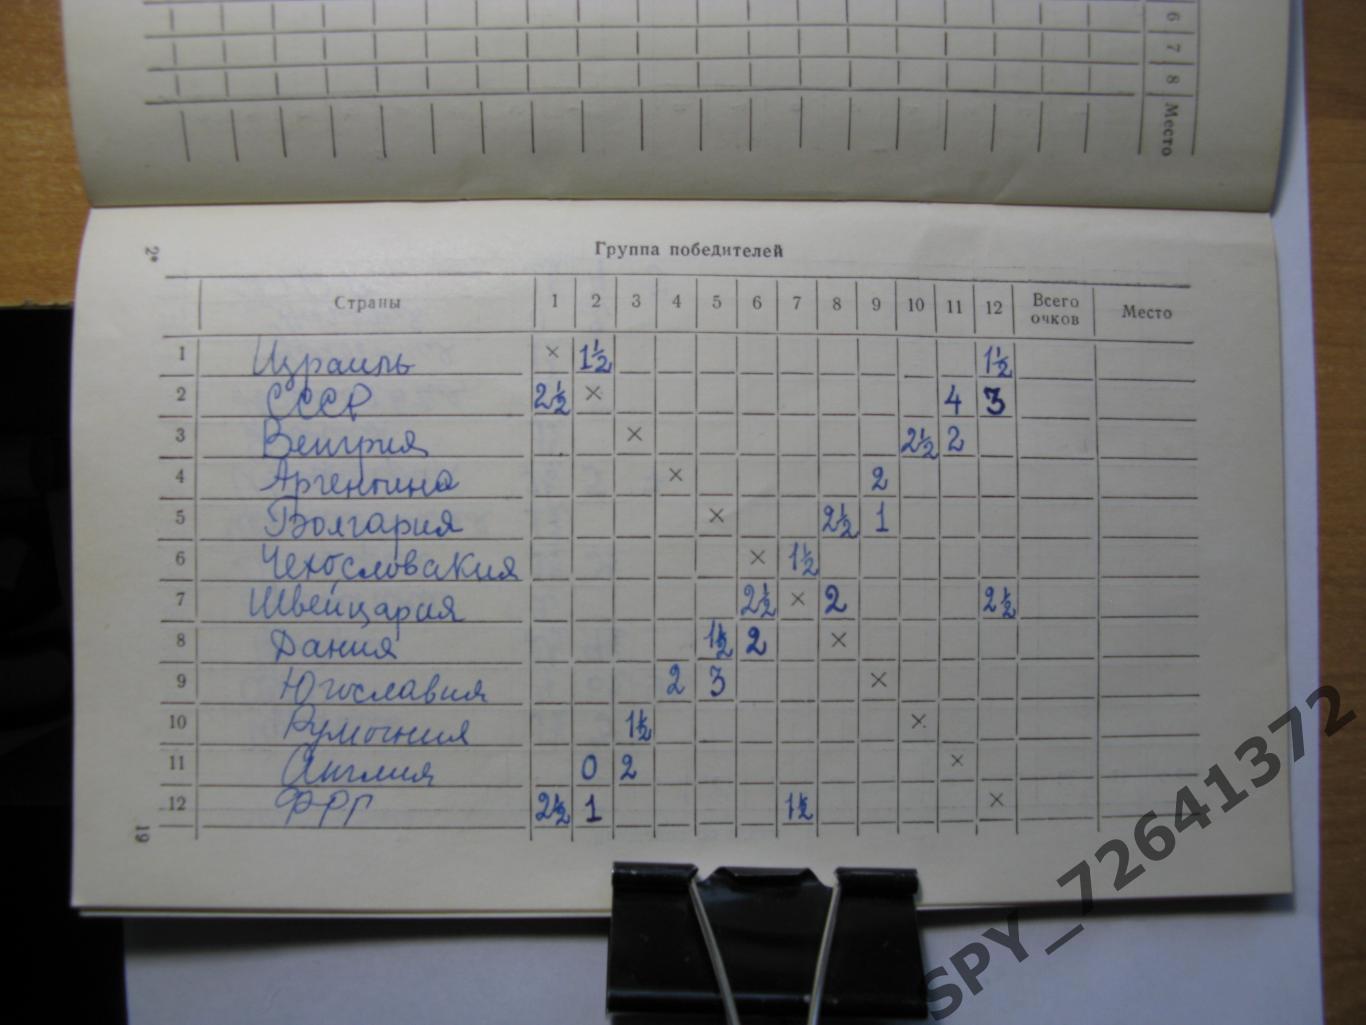 6
7
8
Место
2*
Группа победителей
Страны 1 2 3 4 5 6 7 8 9 10 11 12 Всего очков Место
1 Израиль × 1½ 1½
2 СССР 2½ × 4 3
3 Венгрия × 2½ 2
4 Аргентина × 2
5 Болгария × 2½ 1
6 Чехословакия × 1½
7 Швейцария 2½ × 2 2½
8 Дания 1½ 2 ×
9 Югославия 2 3 ×
10 Румыния 1½ ×
11 Англия 0 2 ×
12 ФРГ 2½ 1 1½ ×
19
SPY_72641372